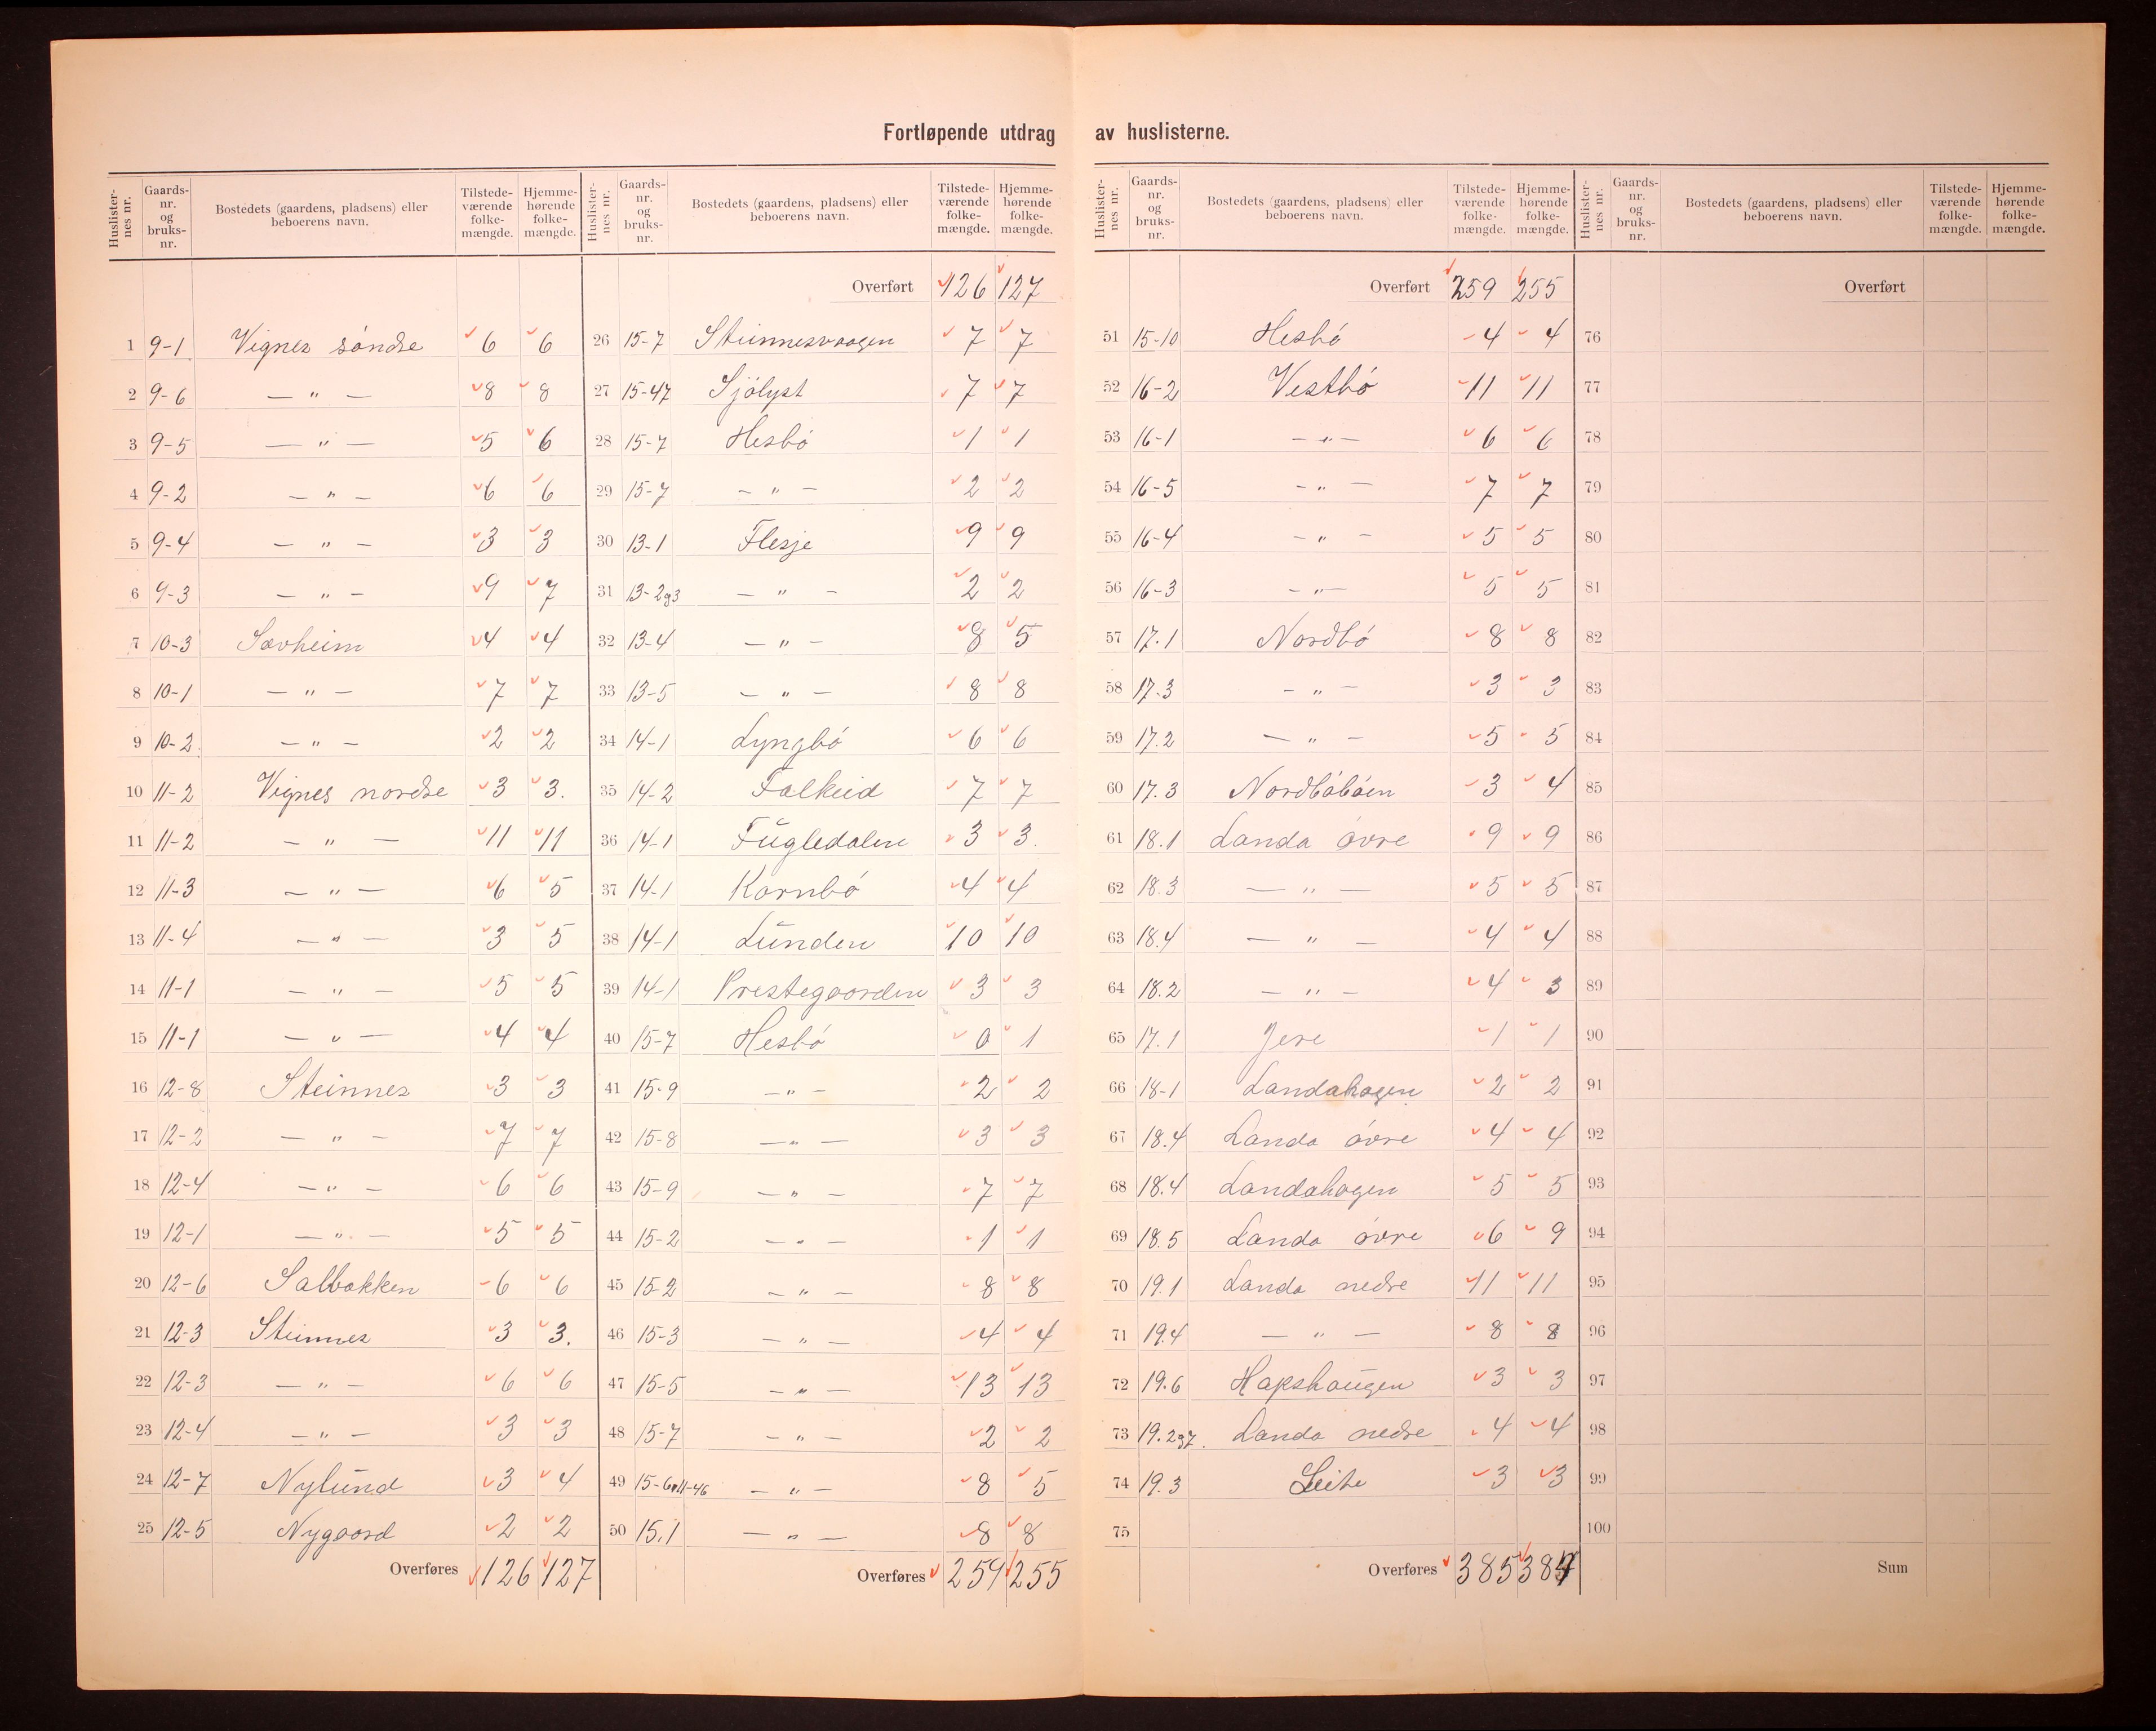 Fortløpende utdrag av huslisterne.
Huslisternes nr. Gaards-nr. og bruks-nr. Bostedets (gaardens, pladsens) eller beboerens navn. Tilstedeværende folkemængde. Hjemmehørende folkemængde.
1 9-1 Vignes söndre 6 6
2 9-6 — " — 8 8
3 9-5 — " — 5 6
4 9-2 — " — 6 6
5 9-4 — " — 3 3
6 9-3 — " — 9 7
7 10-3 Sævheim 4 4
8 10-1 — " — 7 7
9 10-2 — " — 2 2
10 11-2 Vignes nordre 3 3.
11 11-2 — " — 11 11
12 11-3 — " — 6 5
13 11-4 — " — 3 5
14 11-1 — " — 5 5
15 11-1 — " — 4 4
16 12-8 Steinnes 3 3
17 12-2 — " — 7 7
18 12-4 — " — 6 6
19 12-1 — " — 5 5
20 12-6 Salbakken 6 6
21 12-3 Steinnes 3 3.
22 12-3 — " — 6 6
23 12-4 — " — 3 3
24 12-7 Nylund 3 4
25 12-5 Nygaard 2 2
Overføres 126 127
Huslisternes nr. Gaards-nr. og bruks-nr. Bostedets (gaardens, pladsens) eller beboerens navn. Tilstedeværende folkemængde. Hjemmehørende folkemængde.
Overført 126 127
26 15-7 Steinnesvaagen 7 7
27 15-47 Sjölyst 7 7
28 15-7 Hesbö 1 1
29 15-7 — " — 2 2
30 13-1 Flesje 9 9
31 13-2og3 — " — 2 2
32 13-4 — " — 8 5
33 13-5 — " — 8 8
34 14-1 Lyngbö 6 6
35 14-2 Falkeid 7 7
36 14-1 Fugledalen 3 3.
37 14-1 Kornbö 4 4
38 14-1 Lunden 10 10
39 14-1 Prestegaarden 3 3
40 15-7 Hesbö 0 1
41 15-9 — " — 2 2
42 15-8 — " — 3 3
43 15-9 — " — 7 7
44 15-2 — " — 1 1
45 15-2 — " — 8 8
46 15-3 — " — 4 4
47 15-5 — " — 13 13
48 15-7 — " — 2 2
49 — " — 8 5
50 15.1 — " — 8 8
Overføres 259 255
Huslisternes nr. Gaards-nr. og bruks-nr. Bostedets (gaardens, pladsens) eller beboerens navn. Tilstedeværende folkemængde. Hjemmehørende folkemængde.
Overført 259 255
51 15-10 Hesbö 4 4
52 16-2 Vestbö 11 11
53 16-1 — " — 6 6
54 16-5 — " — 7 7
55 16-4 — " — 5 5
56 16-3 — " — 5 5
57 17.1 Nordbö 8 8
58 17.3 — " — 3 3
59 17.2 — " — 5 5
60 17.3 Nordböböen 3 4
61 18.1 Landa övre 9 9
62 18.3 — " — 5 5
63 18.4 — " — 4 4
64 18.2 — " — 4 3
65 17.1 Jere 1 1
66 18-1 Landahagen 2 2
67 18.4 Landa övre 4 4
68 18.4 Landahagen 5 5
69 18.5 Landa övre 6 9
70 19.1 Landa nedre 11 11
71 19.4 — " — 8 8
72 19.6 Hapshaugen 3 3
73 19.2og7. Landa nedre 4 4
74 19.3 Leite 3 3
75
Overføres 385 384
Huslisternes nr. Gaards-nr. og bruks-nr. Bostedets (gaardens, pladsens) eller beboerens navn. Tilstedeværende folkemængde. Hjemmehørende folkemængde.
Overført
76
77
78
79
80
81
82
83
84
85
86
87
88
89
90
91
92
93
94
95
96
97
98
99
100
Sum